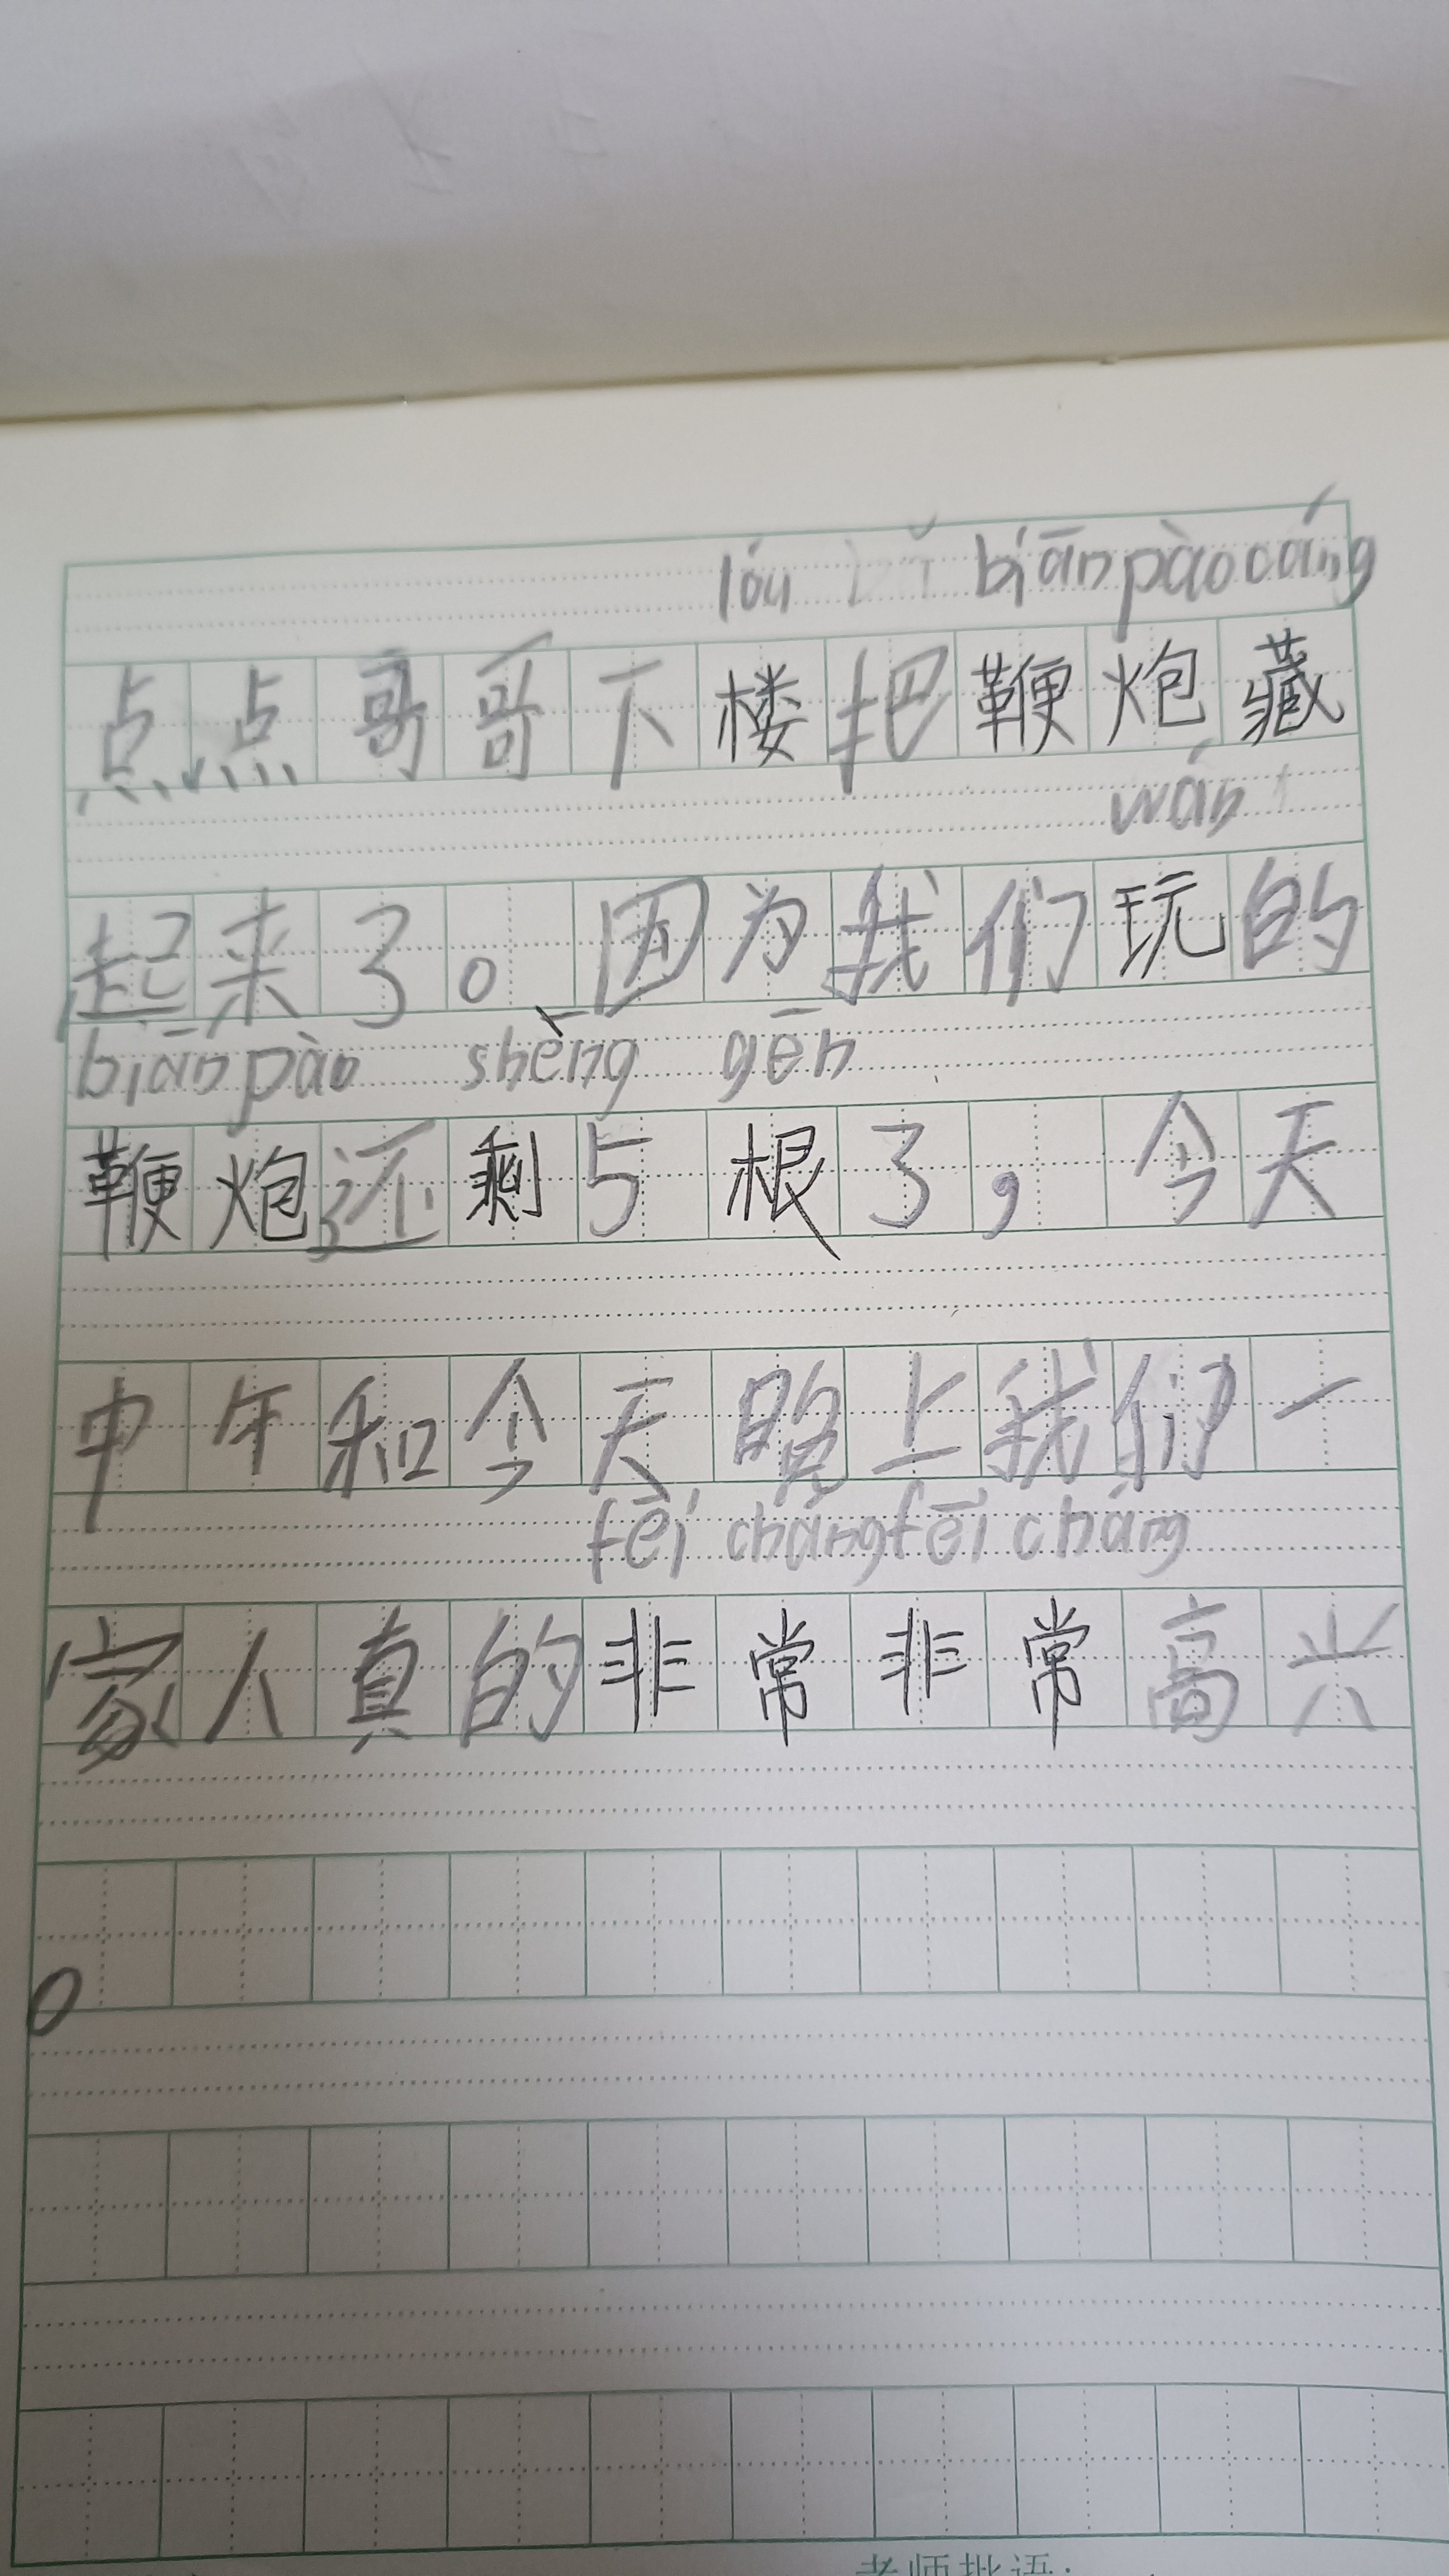 lóu bǎ biānpào cáng
点点哥哥下楼把鞭炮藏
wán
起来了。因为我们玩的
biānpào shèng gēn
鞭炮还剩5根了，今天
中午和今天晚上我们一
fēi cháng fēi cháng
家人真的非常非常高兴
。
老师批语: